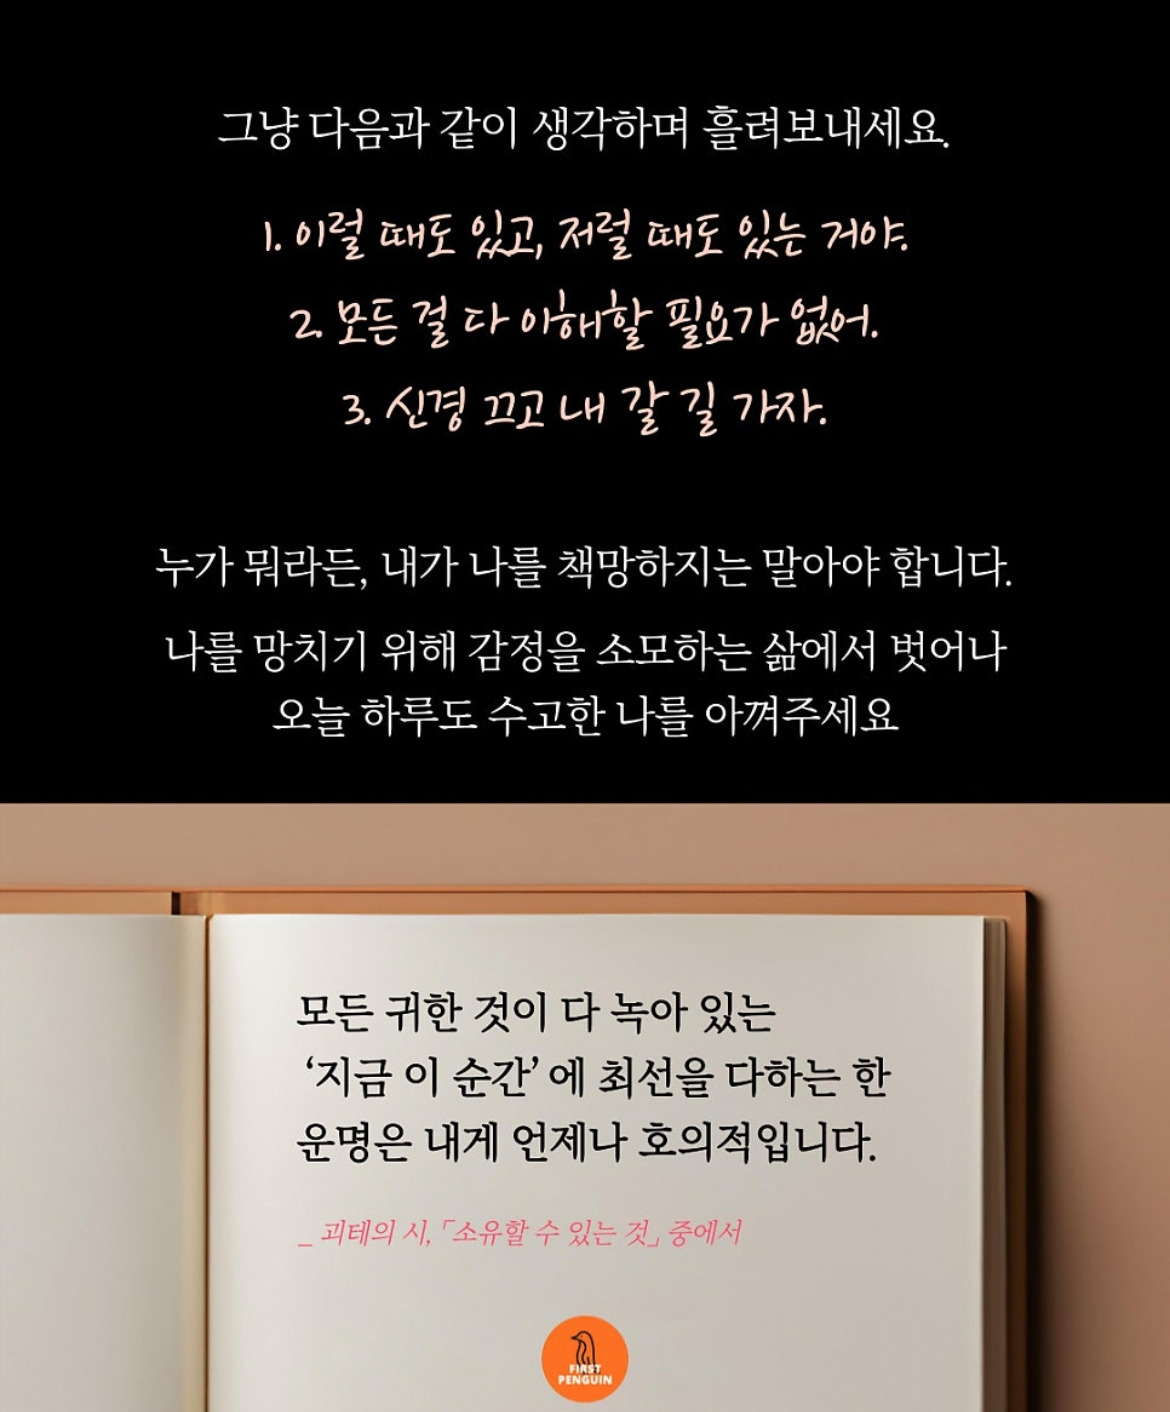 그냥 다음과 같이 생각하며 흘려보내세요.
1. 이럴 때도 있고, 저럴 때도 있는 거야.
2. 모든 걸 다 이해할 필요가 없어.
3. 신경 끄고 내 갈 길 가자.
누가 뭐라든, 내가 나를 책망하지는 말아야 합니다.
나를 망치기 위해 감정을 소모하는 삶에서 벗어나
오늘 하루도 수고한 나를 아껴주세요
모든 귀한 것이 다 녹아 있는
‘지금 이 순간’에 최선을 다하는 한
운명은 내게 언제나 호의적입니다.
_ 괴테의 시, 「소유할 수 있는 것」 중에서
FIRST
PENGUIN